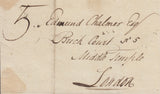 5 Edmund Chalmer Esqr
Birch Court No 5
Middle Temple
London